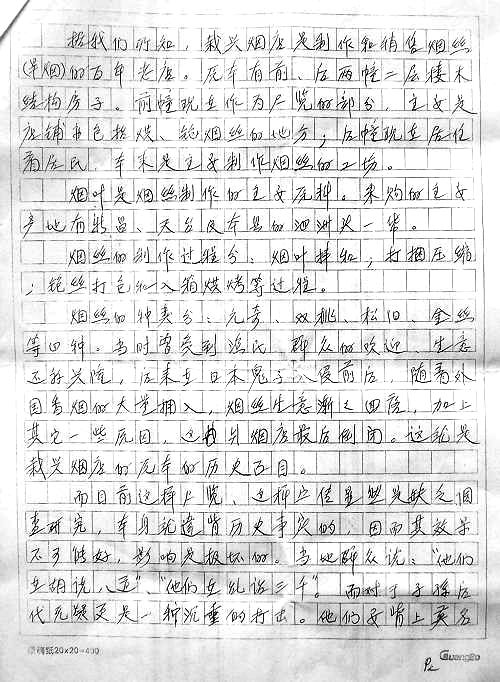 据我们所知，裁兴烟店是制作和销售烟丝
(旱烟)的百年老店。原本有前、后两幢二层楼木
结构房子。前幢现在作为展览的部分，主要是
店铺并包括烘、铇烟丝的地方；后幢现在居住
着居民，本来是主要制作烟丝的工场。
烟叶是烟丝制作的主要原料。采购的主要
产地有新昌、天台及本县的泗洲头一带。
烟丝的制作过程分：烟叶拌和；打捆压缩
；铇丝打包和入箱烘烤等过程。
烟丝的种类分：元奇、双桃、松旧、金丝
等四种。当时曾受到渔民、群众的欢迎、生意
还好兴隆，后来在日本鬼子入侵前后，随着外
国香烟的大量拥入，烟丝生意渐之四落，加上
其它一些原因，这另烟店最后倒闭。这就是
裁兴烟店的原本的历史面目。
而目前这种展览、这种宣传显然是缺乏调
查研究，本身就违背历史事实的，因而其效果
不可能好，影响是极坏的。当地群众说："他们
在胡说八道"、"他们在乱话三千"。而对于子孙后
代无疑更是一种沉重的打击。他们要背上莫名
稿纸20×20=400
Guangbo
P2